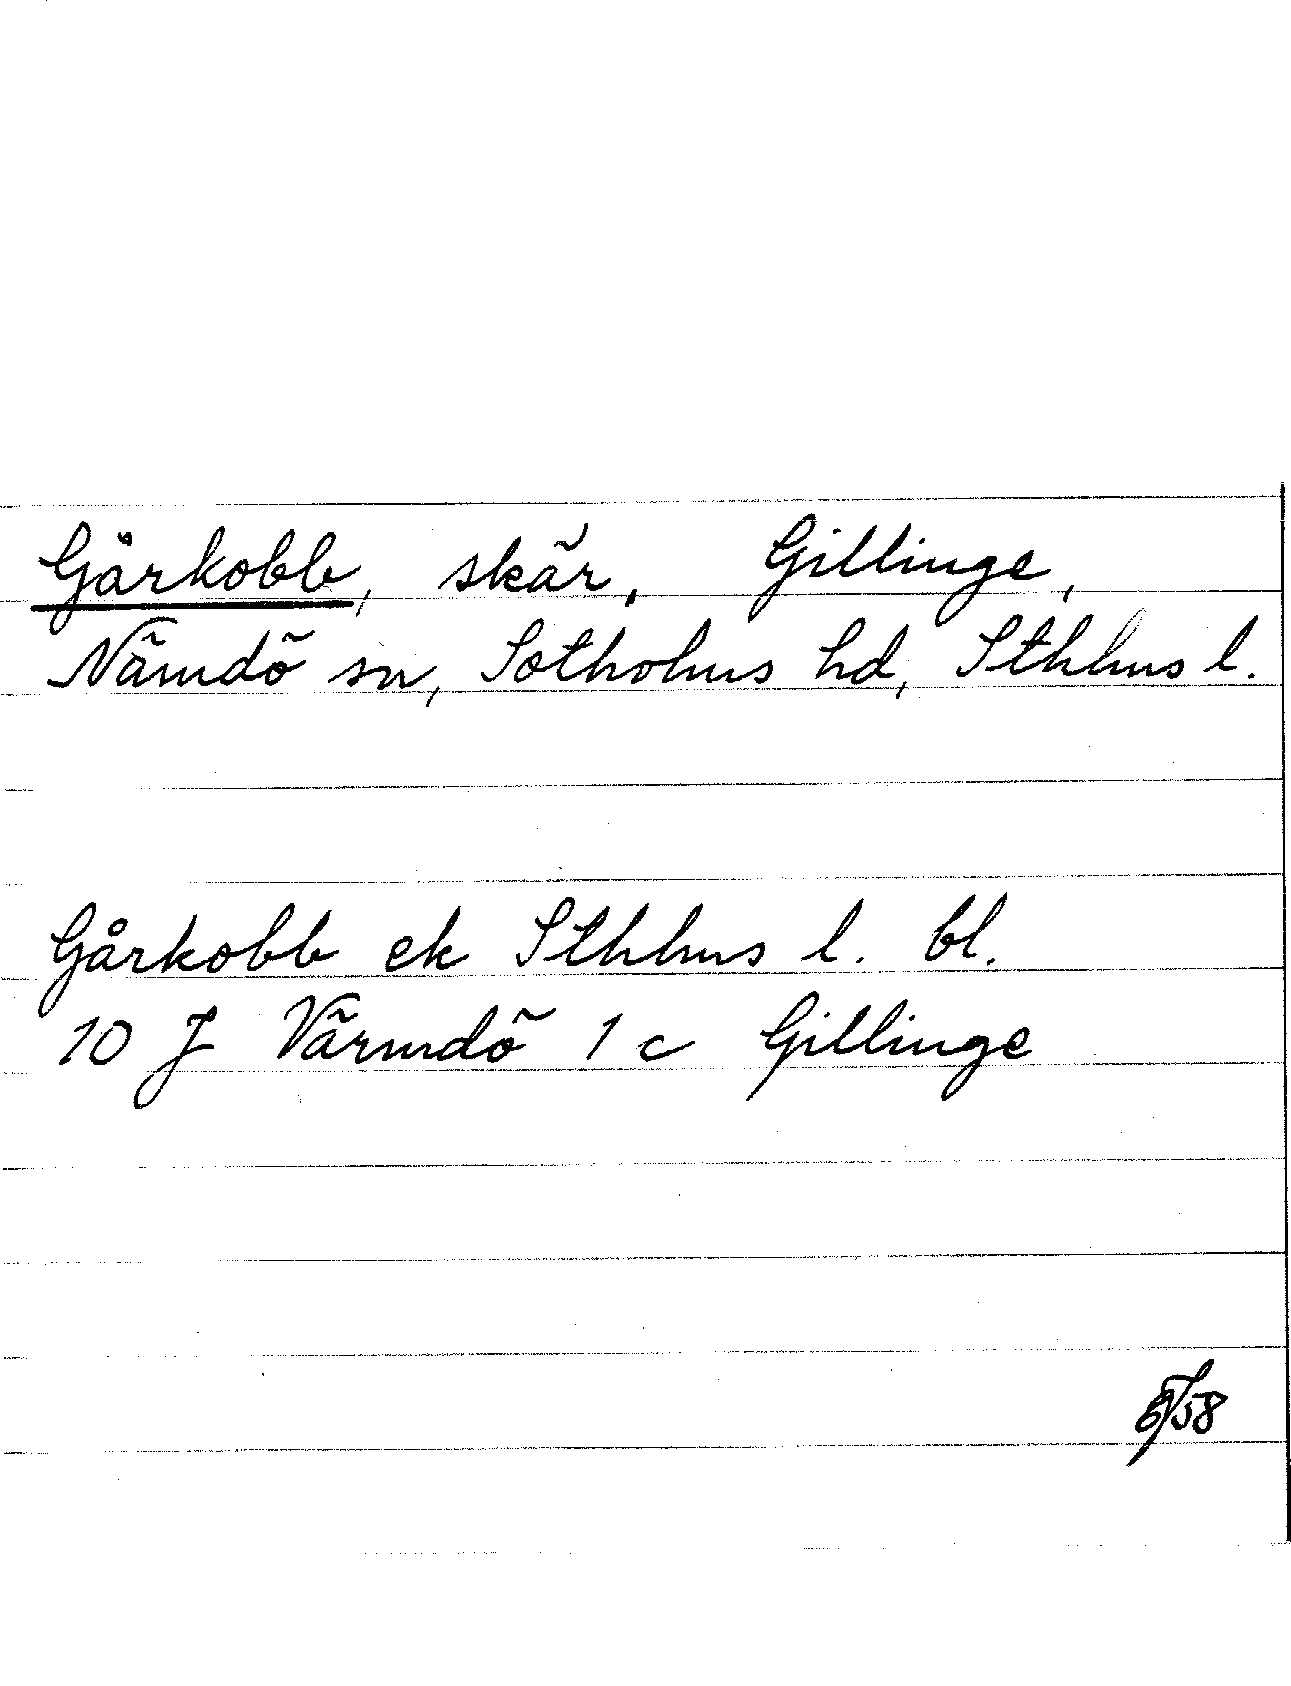 Gårkobb, skär, Gillinge,
Nämdö sn, Sotholms hd, Sthlms l.
Gårkobb ek Sthlms l. bl.
10 J Värmdö 1 c Gillinge